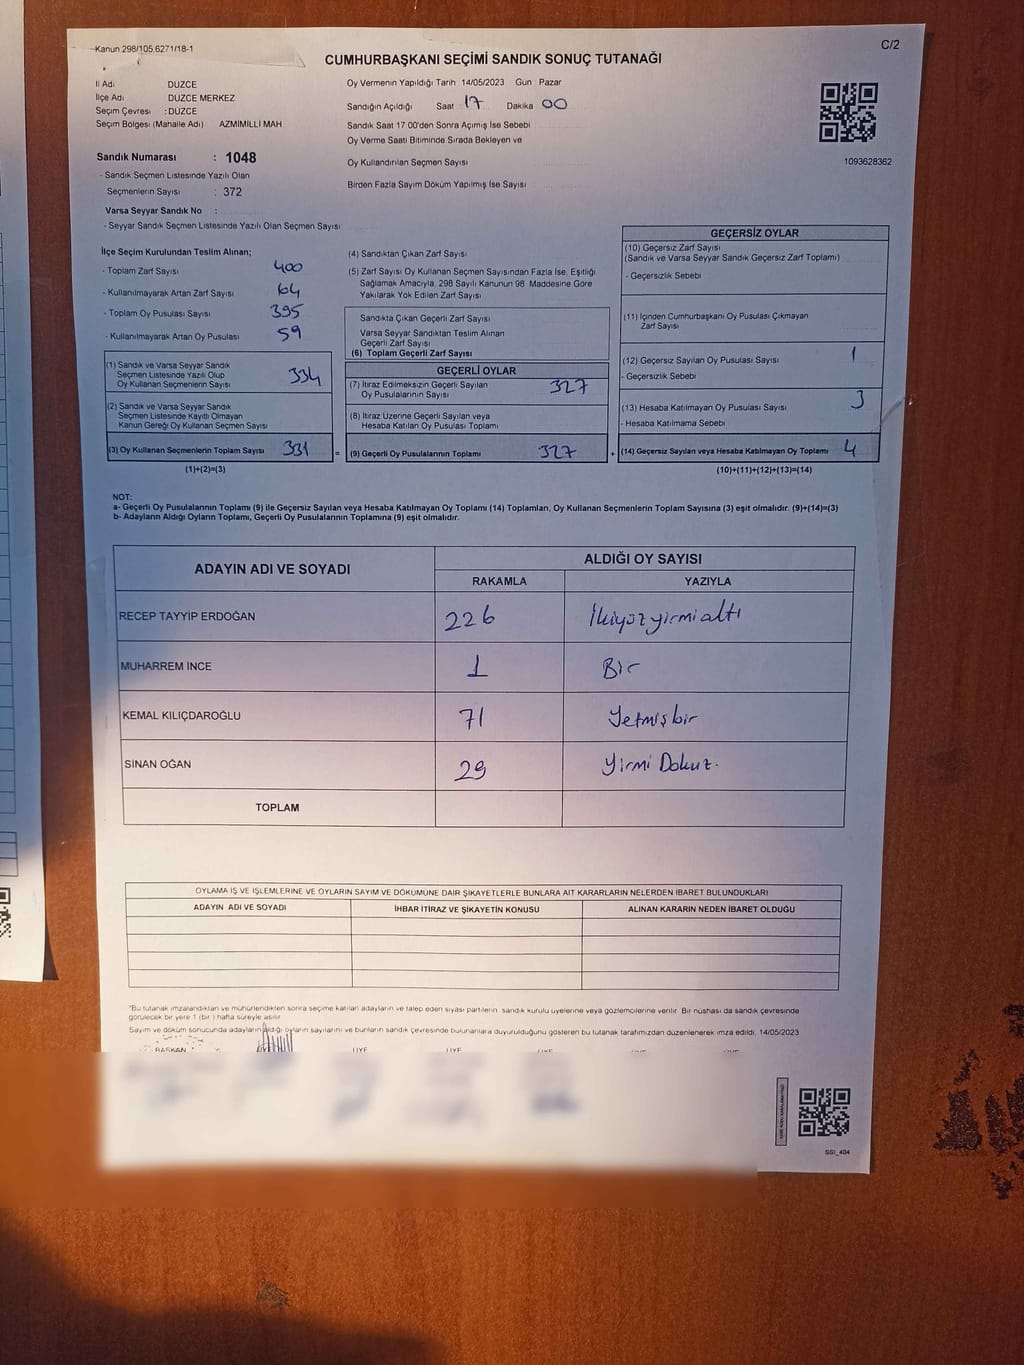 Kanun 298/105 6271/18-1
C/2
CUMHURBAŞKANI SEÇİMİ SANDIK SONUÇ TUTANAĞI
İl Adı DUZCE
İlçe Adı DUZCE MERKEZ
Seçim Çevresi : DUZCE
Seçim Bölgesi (Mahalle Adı) AZMİMİLLİ MAH
Oy Vermenin Yapıldığı Tarih 14/05/2023 Gün Pazar
Sandığın Açıldığı Saat 17 Dakika 00
Sandık Saat 17 00'den Sonra Açımış İse Sebebi
Oy Verme Saati Bitiminde Sırada Bekleyen ve
Oy Kullandırılan Seçmen Sayısı
Birden Fazla Sayım Döküm Yapılmış İse Sayısı
1093628362
Sandık Numarası : 1048
- Sandık Seçmen Listesinde Yazılı Olan
Seçmenlerin Sayısı : 372
Varsa Seyyar Sandık No :
- Seyyar Sandık Seçmen Listesinde Yazılı Olan Seçmen Sayısı
İlçe Seçim Kurulundan Teslim Alınan;
- Toplam Zarf Sayısı 400
- Kullanılmayarak Artan Zarf Sayısı 64
- Toplam Oy Pusulası Sayısı 395
- Kullanılmayarak Artan Oy Pusulası 59
(1) Sandık ve Varsa Seyyar Sandık
Seçmen Listesinde Yazılı Olup
Oy Kullanan Seçmenlerin Sayısı 334
(2) Sandık ve Varsa Seyyar Sandık
Seçmen Listesinde Kayıtlı Olmayan
Kanun Gereği Oy Kullanan Seçmen Sayısı
(3) Oy Kullanan Seçmenlerin Toplam Sayısı 331 =
(1)+(2)=(3)
(4) Sandıktan Çıkan Zarf Sayısı
(5) Zarf Sayısı Oy Kullanan Seçmen Sayısından Fazla İse, Eşitliği
Sağlamak Amacıyla, 298 Sayılı Kanunun 98 Maddesine Göre
Yakılarak Yok Edilen Zarf Sayısı
Sandıkta Çıkan Geçerli Zarf Sayısı
Varsa Seyyar Sandıktan Teslim Alınan
Geçerli Zarf Sayısı
(6) Toplam Geçerli Zarf Sayısı
GEÇERLİ OYLAR
(7) İtiraz Edilmeksizin Geçerli Sayılan
Oy Pusulalarının Sayısı 327
(8) İtiraz Üzerine Geçerli Sayılan veya
Hesaba Katılan Oy Pusulası Toplamı
(9) Geçerli Oy Pusulalarının Toplamı 327 +
GEÇERSİZ OYLAR
(10) Geçersiz Zarf Sayısı
(Sandık ve Varsa Seyyar Sandık Geçersiz Zarf Toplamı)
- Geçersizlik Sebebi
(11) İçinden Cumhurbaşkanı Oy Pusulası Çıkmayan
Zarf Sayısı
(12) Geçersiz Sayılan Oy Pusulası Sayısı 1
- Geçersizlik Sebebi
(13) Hesaba Katılmayan Oy Pusulası Sayısı 3
- Hesaba Katılmama Sebebi
(14) Geçersiz Sayılan veya Hesaba Katılmayan Oy Toplamı 4
(10)+(11)+(12)+(13)=(14)
NOT:
a- Geçerli Oy Pusulalarının Toplamı (9) ile Geçersiz Sayılan veya Hesaba Katılmayan Oy Toplamı (14) Toplamları, Oy Kullanan Seçmenlerin Toplam Sayısına (3) eşit olmalıdır. (9)+(14)=(3)
b- Adayların Aldığı Oyların Toplamı, Geçerli Oy Pusulalarının Toplamına (9) eşit olmalıdır.
ADAYIN ADI VE SOYADI
ALDIĞI OY SAYISI
RAKAMLA YAZIYLA
RECEP TAYYİP ERDOĞAN 226 İkiyüzyirmialtı
MUHARREM İNCE 1 Bir
KEMAL KILIÇDAROĞLU 71 Yetmişbir
SİNAN OĞAN 29 Yirmi Dokuz.
TOPLAM
OYLAMA İŞ VE İŞLEMLERİNE VE OYLARIN SAYIM VE DÖKÜMÜNE DAİR ŞİKAYETLERLE BUNLARA AİT KARARLARIN NELERDEN İBARET BULUNDUKLARI
ADAYIN ADI VE SOYADI İHBAR İTİRAZ VE ŞİKAYETİN KONUSU ALINAN KARARIN NEDEN İBARET OLDUĞU
"Bu tutanak imzalandıktan ve mühürlendikten sonra seçime katılan adayların ve talep eden siyasi partilerin sandık kurulu üyelerine veya gözlemcilerine verilir. Bir nüshası da sandık çevresinde
görülecek bir yere 1 (bir) hafta süreyle asılır
Sayım ve döküm sonucunda adayların aldığı oyların sayılarını ve bunların sandık çevresinde bulunanlara duyurulduğunu gösteren bu tutanak tarafımızdan düzenlenerek imza edildi. 14/05/2023
BAŞKAN ÜYE ÜYE ÜYE ÜYE
SSI_404